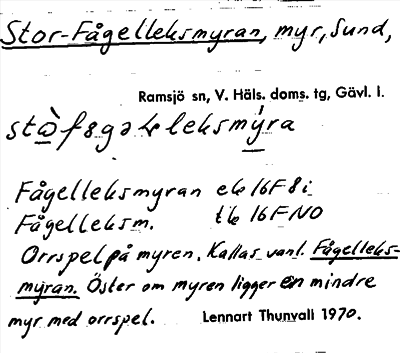 Stor-Fågelleksmyran, myr, Sund,
Ramsjö sn, V. Häls. doms. tg, Gävl. l.
Fågelleksmyran ek 16F8i
Fågelleksm. 16F NO
Orrspel på myren. Kallas vanl. Fågelleks-
myran. Öster om myren ligger en mindre
myr med orrspel. Lennart Thunvall 1970.